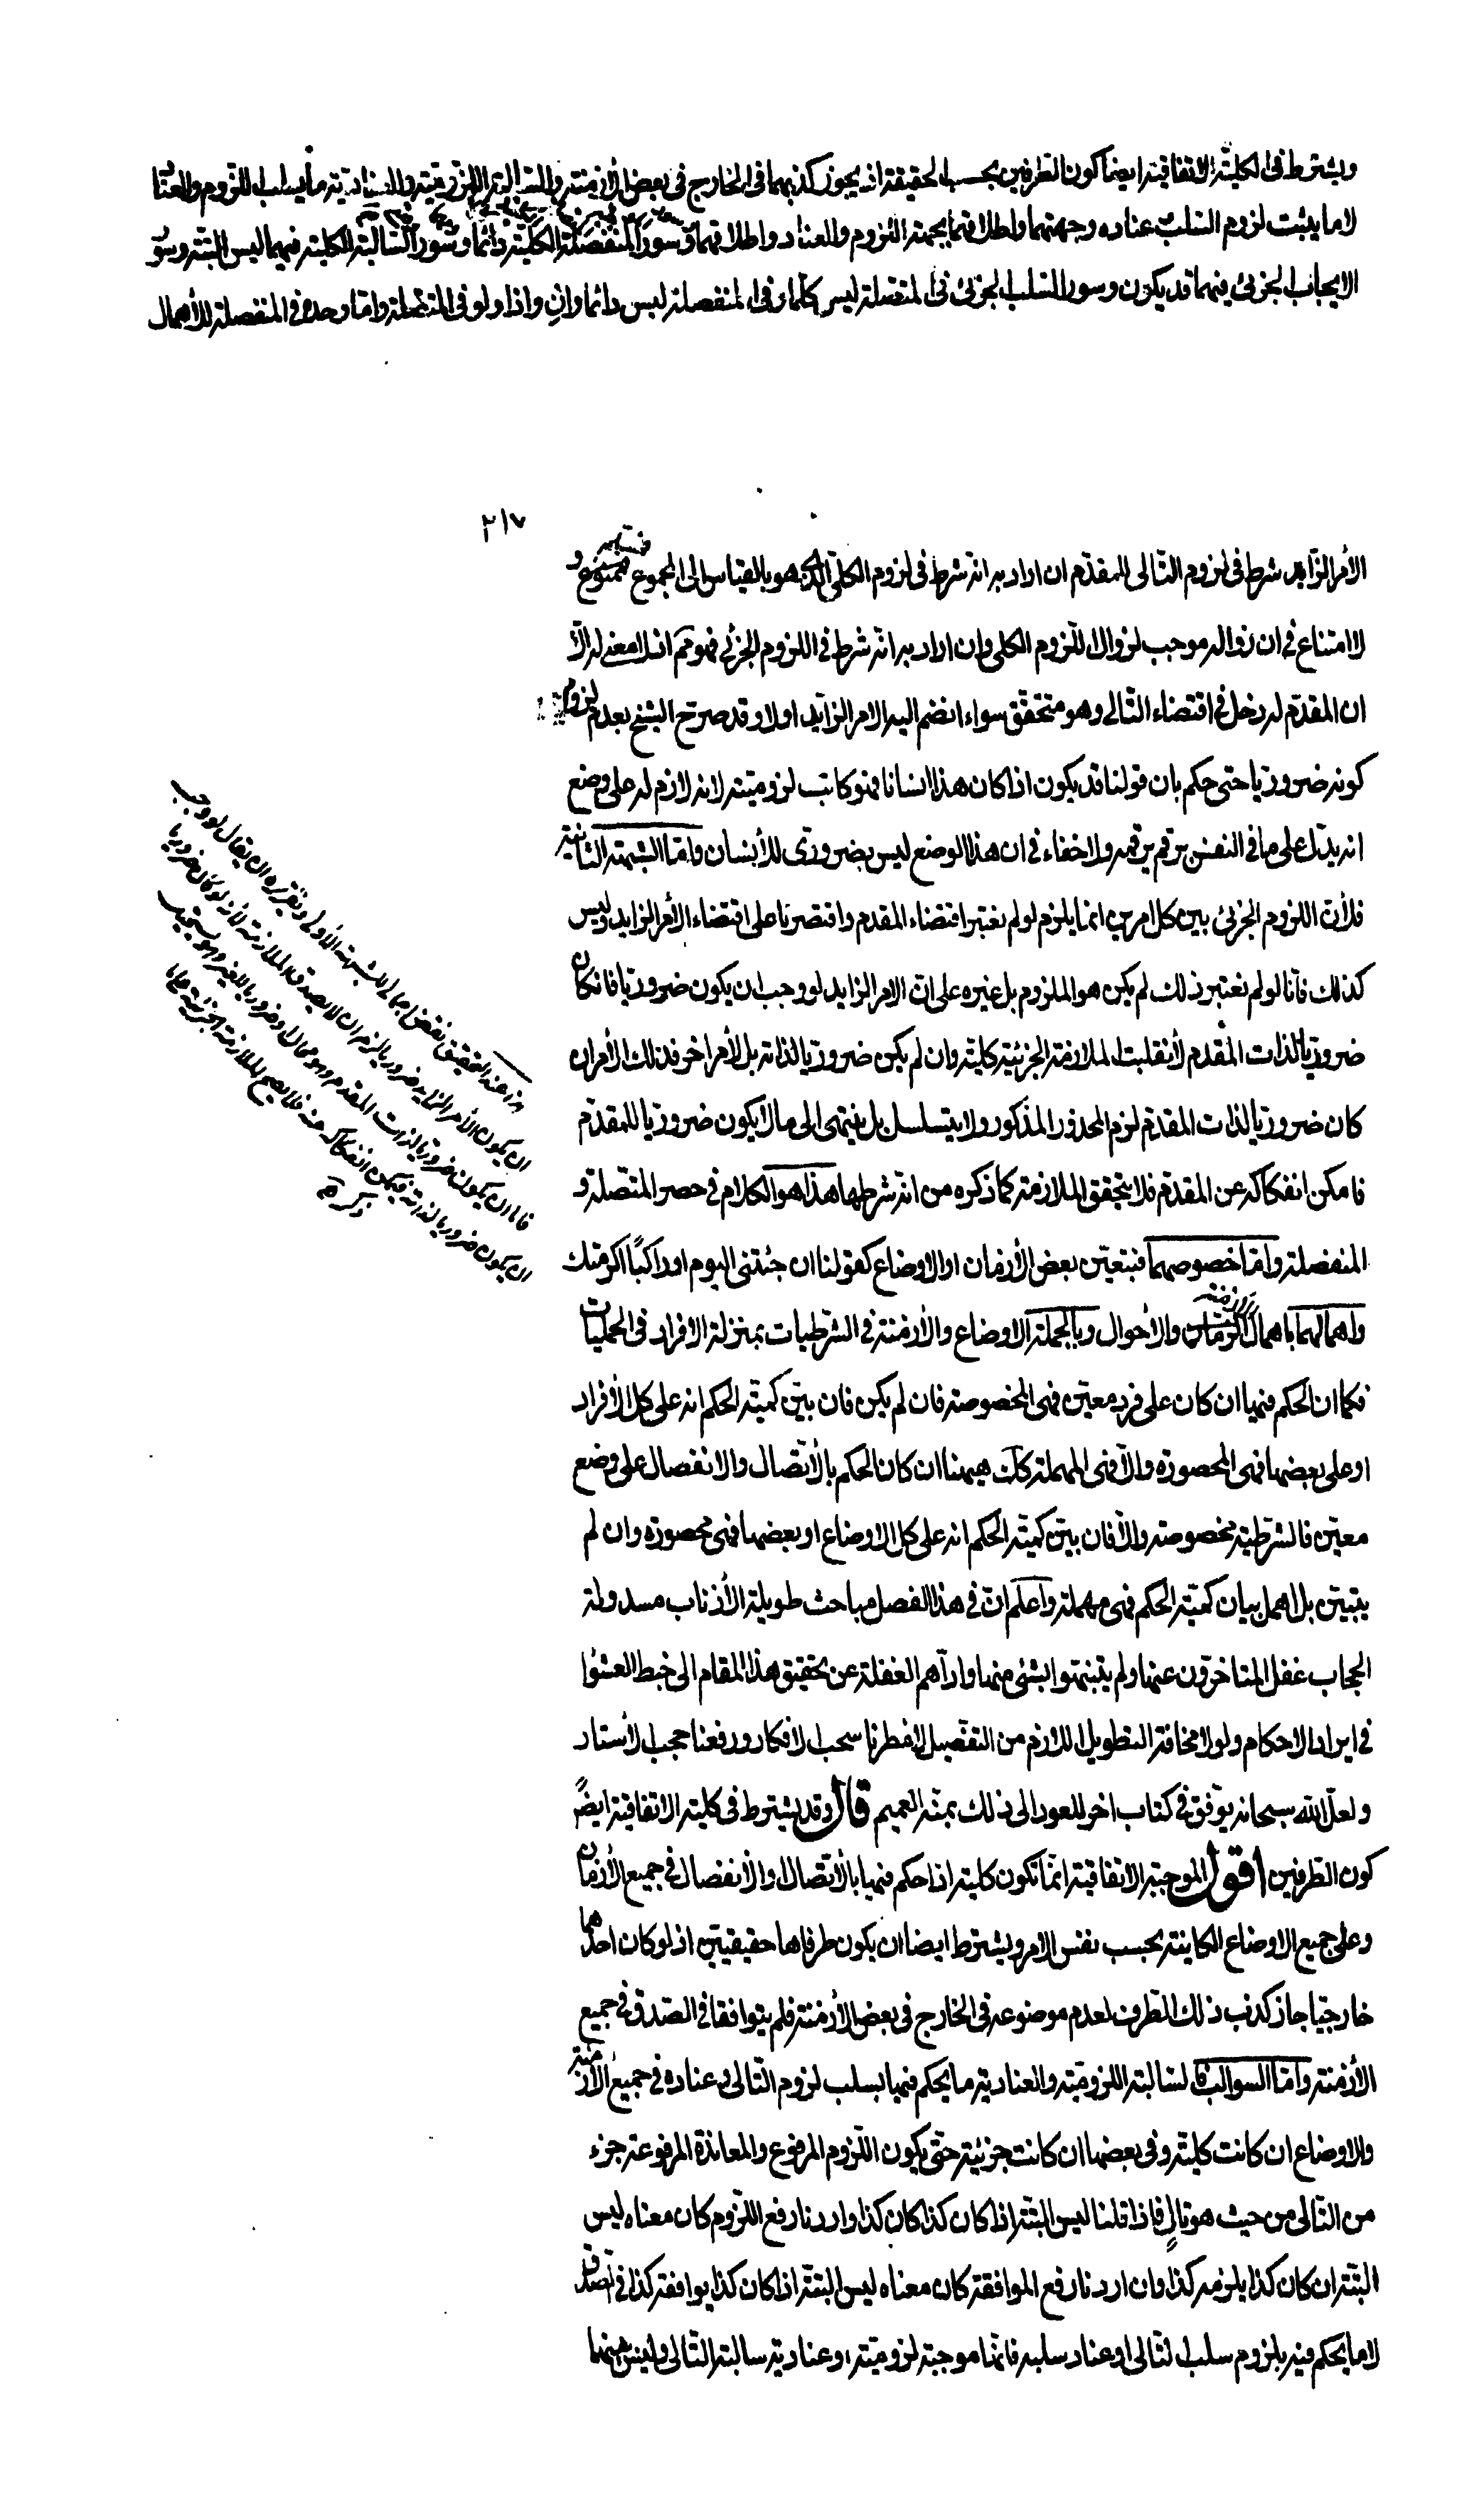 ويشترط فى الكلية الاتفاقية ايضا كون الطرفين بحسب الحقيقة اذ يجوز كذبهما فى الخارج فى بعض الازمنة والسالبة اللزومية والعنادية ما يسلب اللزوم والعنا
لا ما يثبت لزوم السلب عناده وجهتهما واطلاقهما بجهة اللزوم والعناد واطلاقهما وسور المنفصلة الكلية دائما وسور السالبة الكلية فيهما ليس البتة وسو
الايجاب الجزئى فيهما قد يكون وسور السلب الجزئى فى المتصلة ليس كلما وفى المنفصلة ليس دائما وان واذا ولو فى المتصلة واما وحده فى المنفصلة للاهمال
٢١٧
الأمر الزايد شرط فى لزوم التالى للمقدم ان اراد به انه شرط فى لزوم الكلى الذى هو بالقياس الى المجموع فممنوع و
لا امتناع فى ان زواله موجب لزوال اللزوم الكلى وان اراد به انه شرط فى اللزوم الجزئى فهو مم اذ لا معنى له الا
ان المقدم له دخل فى اقتضاء التالى وهو متحقق سواء انضم اليه الامر الزايد اولا وقد صرح الشيخ بعدم لزوم
كونه ضروريا حتى حكم بان قولنا قد يكون اذا كان هذا انسانا فهو كاتب لزومية لانه لازم له على وضع
انه يدل على ما فى النفس برقم يرقمه ولا خفاء فى ان هذا الوضع ليس بضرورى للأنسان واما الشبهة الثانية
فلأن اللزوم الجزئى بين كل امرين انما يلزم لو لم نعتبر اقتضاء المقدم واقتصرنا على اقتضاء الأمر الزايد وليس
كذلك فانا لو لم نعتبر ذلك لم يكن هو الملزوم بل غيره على ان الامر الزايد لو وجب ان يكون ضروريا فانكان
ضروريا لذات المقدم لأنقلبت الملازمة الجزئية كلية وان لم يكن ضروريا لذاته بل لأمر اخر فذلك الأمر ان
كان ضروريا لذات المقدم لزم المحذور المذكور ولا يتسلسل بل ينتهى الى ما لا يكون ضروريا للمقدم
فامكن انفكاكه عن المقدم فلا يتحقق الملازمة كما ذكره من انه شرطها هذا هو الكلام فى حصر المتصلة و
المنفصلة واما خصوصهما فبتعين بعض الأزمان او الاوضاع كقولنا ان جئتنى اليوم او راكبا اكرمتك
واهمالهما باهمال الازمنة والأحوال وبالجملة الاوضاع والأزمنة فى الشرطيات بمنزلة الافراد فى الحمليات
فكما ان الحكم فيها ان كان على فرد معين فهى المخصوصة فان لم يكن فان بين كمية الحكم انه على كل الأفراد
او على بعضها فهى المحصورة والا فهى المهملة كك هيهنا ان كان الحكم بالأتصال والانفصال على وضع
معين فالشرطية مخصوصة والا فان بين كمية الحكم انه على كل الاوضاع او بعضها فهى محصورة وان لم
يتبين بل اهمل بيان كمية الحكم فهى مهملة واعلم ان فى هذا الفصل مباحث طويلة الأذناب مسدولة
الحجاب غفل المتاخرون عنها ولم يتنبهوا بشئ منها واداهم الغفلة عن تحقيق هذا المقام الى خبط العشوا
فى ايراد الاحكام ولولا مخافة التطويل اللازم من التفصيل لامطرنا سحب الافكار ورفعنا حجب الأستار
ولعل الله سبحانه يوفق فى كتاب اخر للعود الى ذلك بمنه العميم قال وقد يشترط فى كلية الاتفاقية ايضا
كون الطرفين اقول الموجبة الاتفاقية انما تكون كلية اذا حكم فيها بالأتصال والأنفصال فى جميع الأزمان
وعلى جميع الاوضاع الكاينة بحسب نفس الامر ويشترط ايضا ان يكون طرفاها حقيقيتين اذ لو كان احدهما
خارجيا جاز كذب ذلك الطرف لعدم موضوعه فى الخارج فى بعض الأزمنة فلم يتوافقا فى الصدق فى جميع
الأزمنة واما السوالب فالسالبة اللزومية والعنادية ما يحكم فيها بسلب لزوم التالى او عناده فى جميع الأزمنة
والاوضاع ان كانت كلية وفى بعضها ان كانت جزئية حتى يكون اللزوم المرفوع والمعاندة المرفوعة جزء
من التالى من حيث هو تال فاذا قلنا ليس البتة اذا كان كذا كان كذا واردنا رفع اللزوم كان معناه ليس
البتة ان كان كذا يلزمه كذا وان اردنا رفع الموافقة كان معناه ليس البتة اذا كان كذا يوافقه كذا فى الصدق
لا ما يحكم فيه بلزوم سلب التالى او عناد سلبه فانها موجبة لزومية او عنادية سالبة التالى وليس بينهما
هذا عند التحقيق نقض اجمالى للشبهة الأولى وتقريره ان يقال لو وجب
ان يكون الأمر الزايد ضروريا لزم ان لا يصدق الملازمة لأنه لو كان ضروريا
فاما ان يكون ضروريا لذات المقدم وهو محال او ضروريا للغير وهو يستحيل
ان يكون ضروريا لذاته فيمكن انفكاكه عنه فلا يصح الملازمة الجزئية على ما
ذكره مم